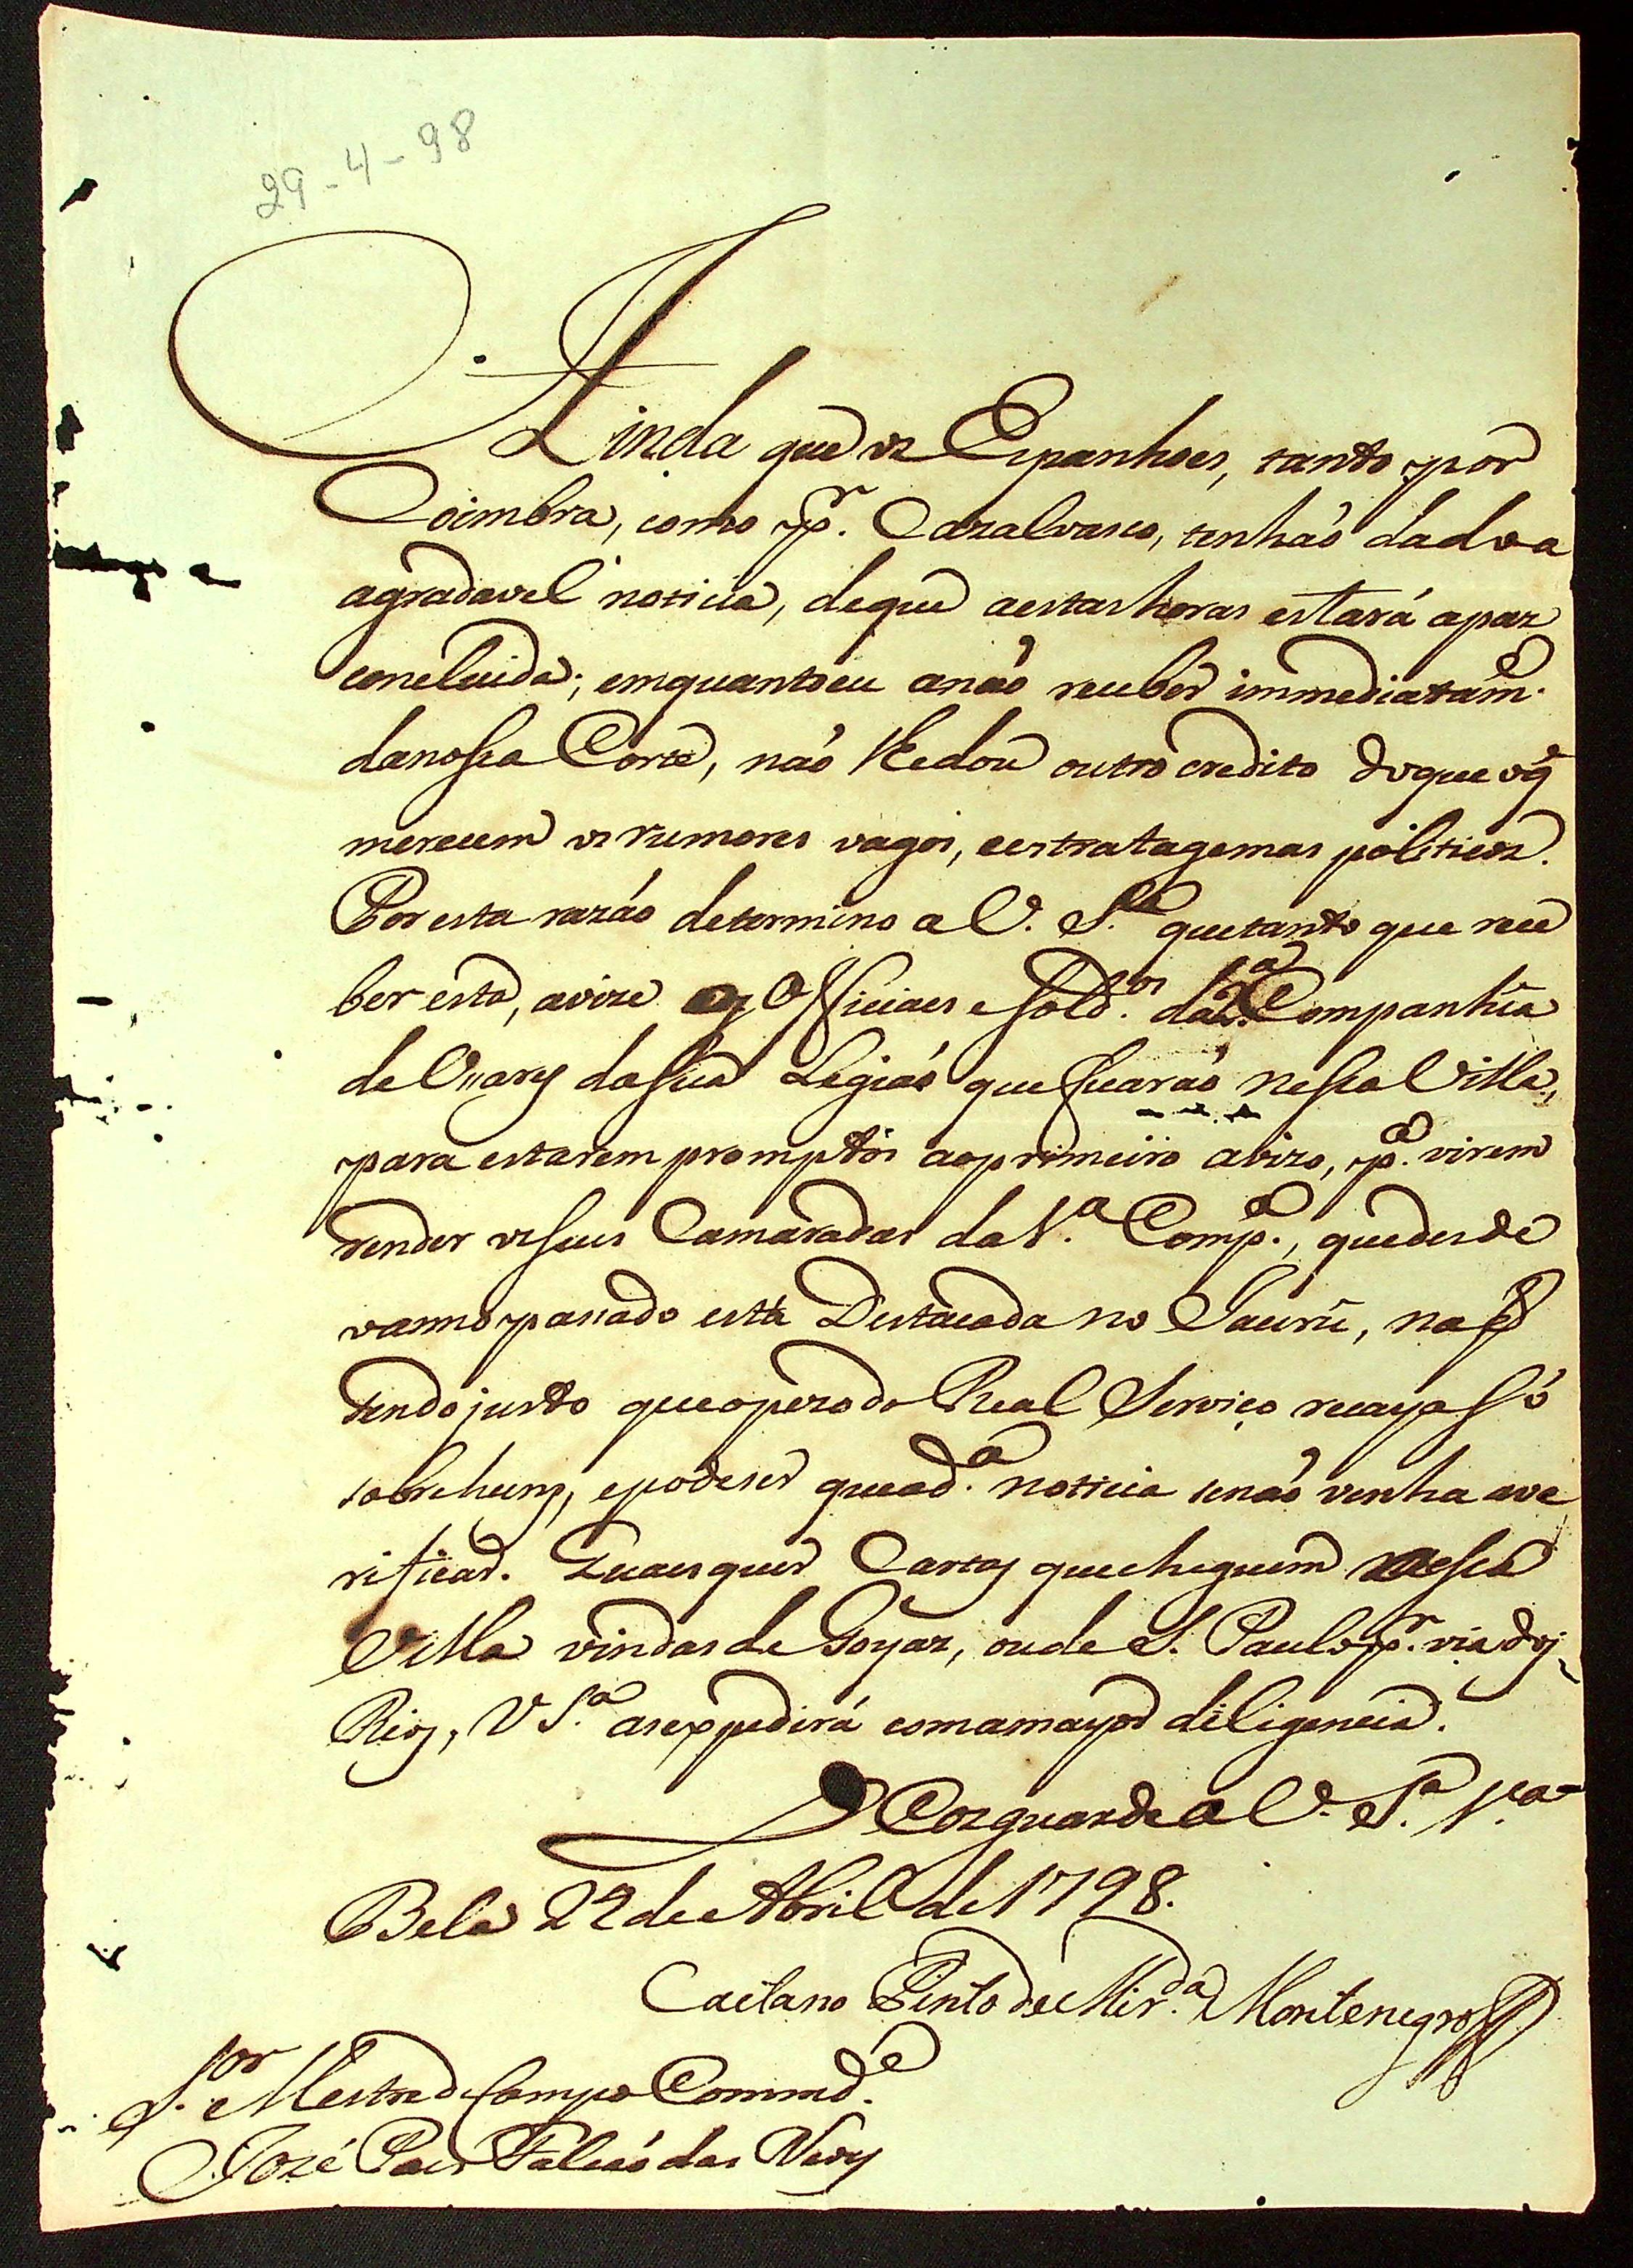 29-4-98
Ainda que os Espanhoes, tanto por
Coimbra, como pr. Cazalvasco, tenhaõ dado a
agradavel noticia, deque aestas horas estará apaz
concluida; emquanto eu anaõ receber immediatame.
danossa Corte, naõ lhe dou outro credito doque oq̃
merecem os rumores vagos, eestratagemas politicos.
Por esta razaõ determino a V. Sa. quetanto que rece
ber esta, avize os Officiaes e Soldos. da 2.a Companhia
de da sua Legiaõ que ficaraõ nessa Villa,
para estarem promptos aoprimeiro avizo, pa. virem
render os seus Camaradas da 1.a Compa., quedesde
oanno passado está Destacada no Jaurú, naõ
sendo justo que opezo do Real Serviço recaya só
sobre huns, epodeser quead.a noticia senaõ venha ave
rificar. Quaesquer Cartas que cheguem nessa
Villa vindas de Goyaz, ou de S. Paulo pr. via dos
Rios, V Sa. as expedirá comamayor diligencia.
Deos guarde a V. Sa. Va.
Bela 29 de Abril de 1798.
Caetano Pinto de Mir.da Montenegro
S.or Mestre de Campo Commd.e
Jozé Paes Falcaõ das Neves